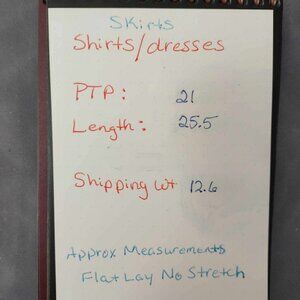 Skirts
Shirts/dresses
PTP: 21
Length: 25.5
Shipping wt 12.6
Approx Measurements
Flat Lay No Stretch